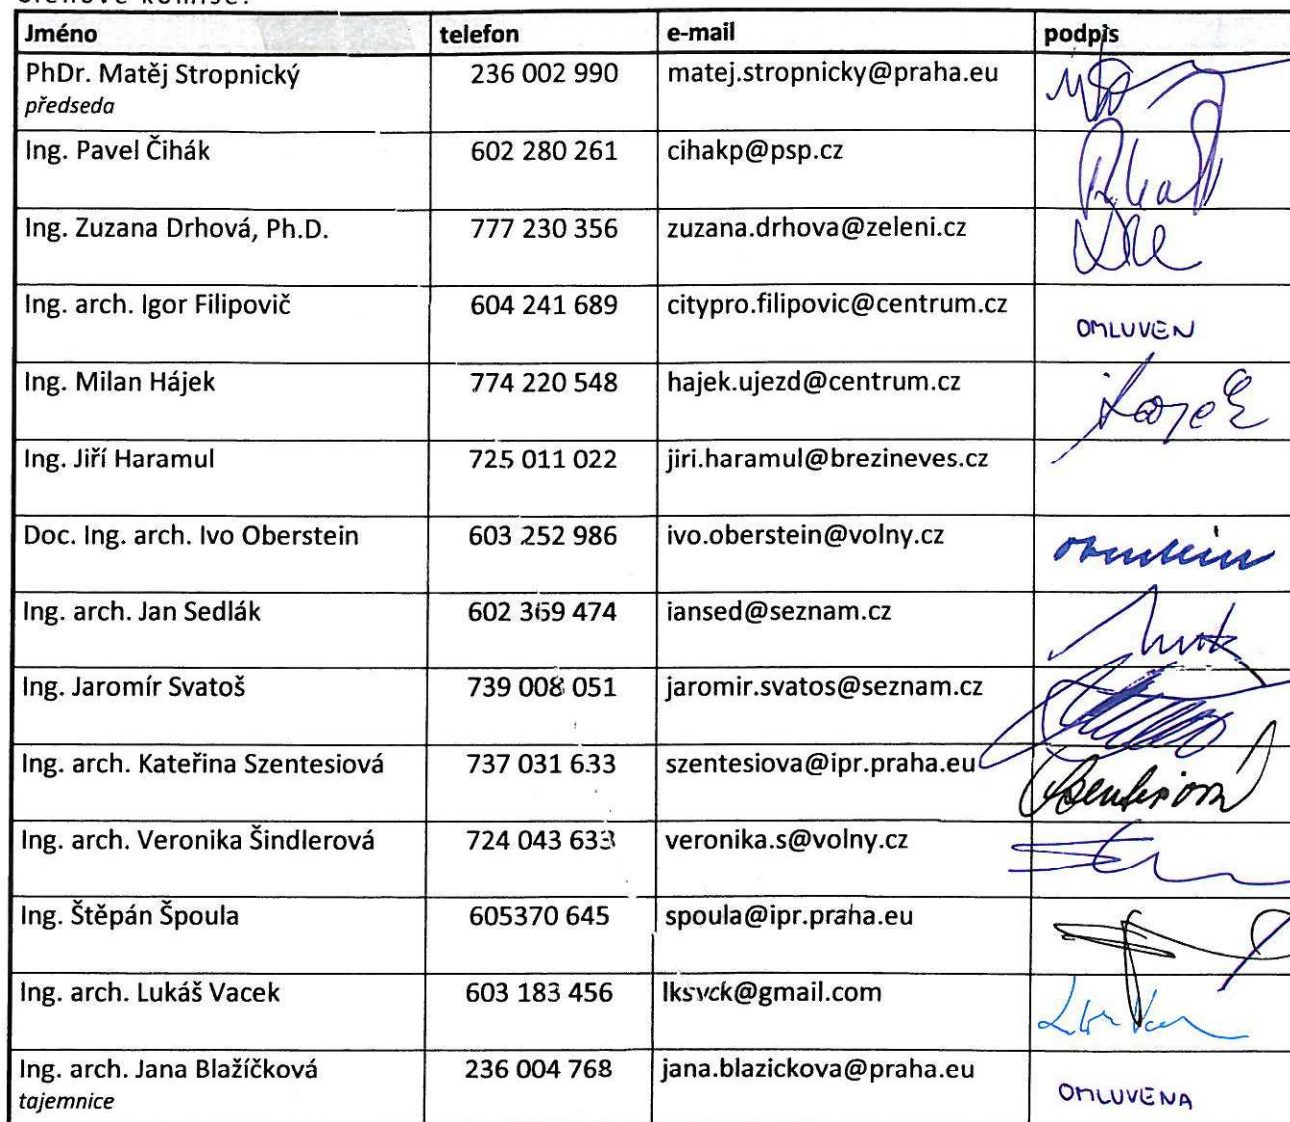 Jméno telefon e-mail podpis
PhDr. Matěj Stropnický 236 002 990 matej.stropnicky@praha.eu
předseda
Ing. Pavel Čihák 602 280 261 cihakp@psp.cz
Ing. Zuzana Drhová, Ph.D. 777 230 356 zuzana.drhova@zeleni.cz
Ing. arch. Igor Filipovič 604 241 689 citypro.filipovic@centrum.cz OMLUVEN
Ing. Milan Hájek 774 220 548 hajek.ujezd@centrum.cz
Ing. Jiří Haramul 725 011 022 jiri.haramul@brezineves.cz
Doc. Ing. arch. Ivo Oberstein 603 252 986 ivo.oberstein@volny.cz
Ing. arch. Jan Sedlák 602 369 474 iansed@seznam.cz
Ing. Jaromír Svatoš 739 008 051 jaromir.svatos@seznam.cz
Ing. arch. Kateřina Szentesiová 737 031 633 szentesiova@ipr.praha.eu
Ing. arch. Veronika Šindlerová 724 043 633 veronika.s@volny.cz
Ing. Štěpán Špoula 605370 645 spoula@ipr.praha.eu
Ing. arch. Lukáš Vacek 603 183 456 lksvck@gmail.com
Ing. arch. Jana Blažíčková 236 004 768 jana.blazickova@praha.eu OMLUVENA
tajemnice